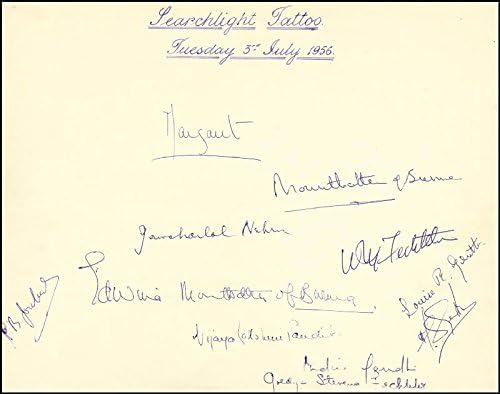 Searchlight Tattoo.
Tuesday 3rd July 1956.
Margaret
Mountbatten of Burma
Jawaharlal Nehru
Edwina Mountbatten of Burma.
Vijaya Lakshmi Pandit
Louise R.
Indira Gandhi
Stevens Fechteler